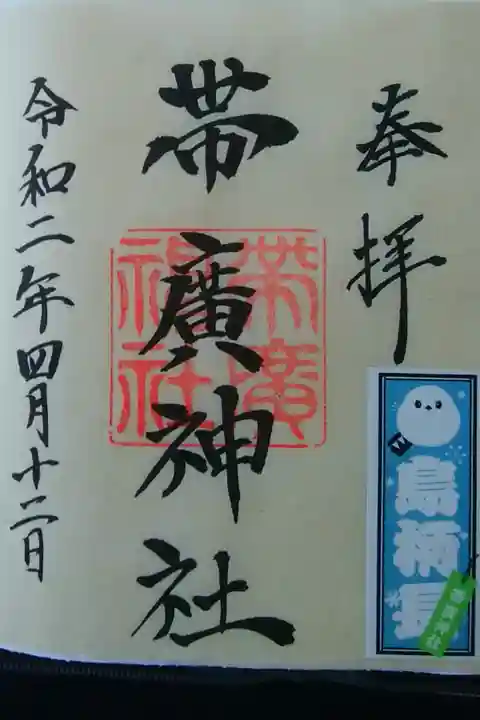 奉拝
帯廣神社
帯廣神社
令和二年四月十二日
島柄長
帯廣神社